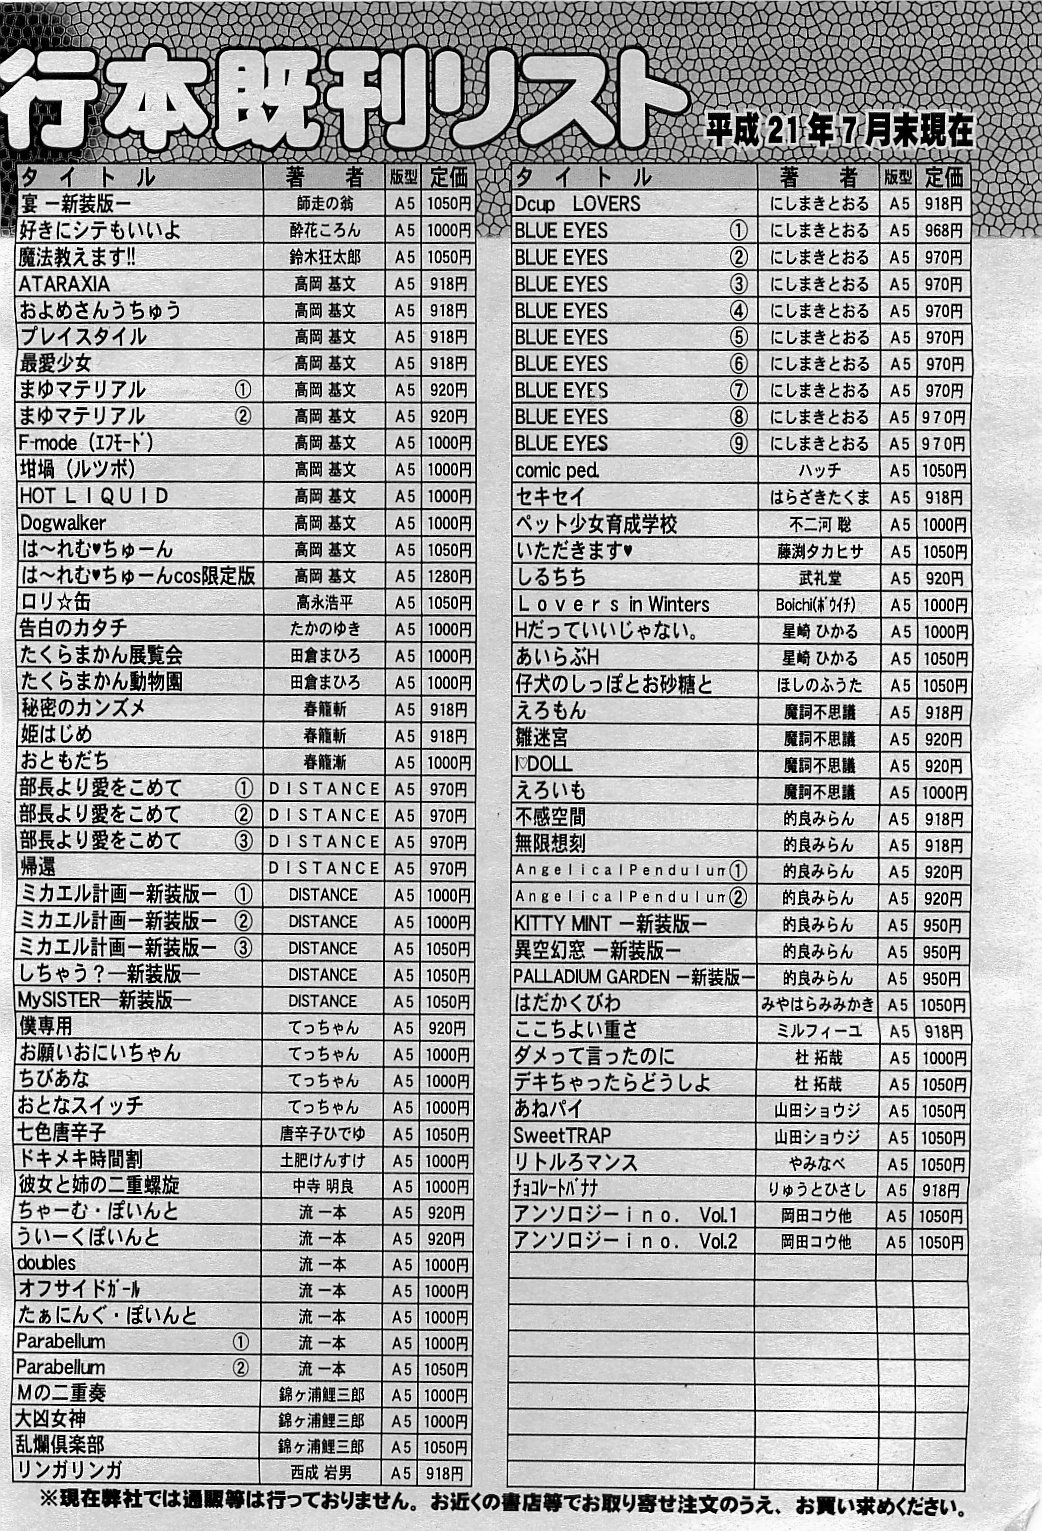 行本既刊リスト
平成21年7月末現在
タイトル 著者 版型 定価
宴 ー新装版ー 師走の翁 A5 1050円
好きにシテもいいよ 酔花ころん A5 1000円
魔法教えます!! 鈴木狂太郎 A5 1050円
ATARAXIA 高岡 基文 A5 918円
およめさんうちゅう 高岡 基文 A5 918円
プレイスタイル 高岡 基文 A5 918円
最愛少女 高岡 基文 A5 918円
まゆマテリアル ① 高岡 基文 A5 920円
まゆマテリアル ② 高岡 基文 A5 920円
F-mode（ｴﾌﾓｰﾄﾞ） 高岡 基文 A5 1000円
坩堝（ルツボ） 高岡 基文 A5 1000円
HOT LIQUID 高岡 基文 A5 1000円
Dogwalker 高岡 基文 A5 1000円
は〜れむ♥ちゅーん 高岡 基文 A5 1050円
は〜れむ♥ちゅーんcos限定版 高岡 基文 A5 1280円
ロリ☆缶 高永浩平 A5 1050円
告白のカタチ たかのゆき A5 1000円
たくらまかん展覧会 田倉まひろ A5 1000円
たくらまかん動物園 田倉まひろ A5 1000円
秘密のカンズメ 春籠斬 A5 918円
姫はじめ 春籠斬 A5 918円
おともだち 春籠漸 A5 1000円
部長より愛をこめて ① DISTANCE A5 970円
部長より愛をこめて ② DISTANCE A5 970円
部長より愛をこめて ③ DISTANCE A5 970円
帰還 DISTANCE A5 970円
ミカエル計画ー新装版ー ① DISTANCE A5 1000円
ミカエル計画ー新装版ー ② DISTANCE A5 1000円
ミカエル計画ー新装版ー ③ DISTANCE A5 1050円
しちゃう？―新装版― DISTANCE A5 1050円
MySISTER―新装版― DISTANCE A5 1050円
僕専用 てっちゃん A5 920円
お願いおにいちゃん てっちゃん A5 1000円
ちびあな てっちゃん A5 1000円
おとなスイッチ てっちゃん A5 1000円
七色唐辛子 唐辛子ひでゆ A5 1050円
ドキメキ時間割 土肥けんすけ A5 1000円
彼女と姉の二重螺旋 中寺 明良 A5 1000円
ちゃーむ・ぽいんと 流 一本 A5 920円
ういーくぽいんと 流 一本 A5 920円
doubles 流 一本 A5 1000円
オフサイドｶﾞｰﾙ 流 一本 A5 1000円
たぁにんぐ・ぽいんと 流 一本 A5 1000円
Parabellum ① 流 一本 A5 1000円
Parabellum ② 流 一本 A5 1050円
Mの二重奏 錦ヶ浦鯉三郎 A5 1000円
大凶女神 錦ヶ浦鯉三郎 A5 1000円
乱爛倶楽部 錦ヶ浦鯉三郎 A5 1050円
リンガリンガ 西成 岩男 A5 918円
タイトル 著者 版型 定価
Dcup LOVERS にしまきとおる A5 918円
BLUE EYES ① にしまきとおる A5 968円
BLUE EYES ② にしまきとおる A5 970円
BLUE EYES ③ にしまきとおる A5 970円
BLUE EYES ④ にしまきとおる A5 970円
BLUE EYES ⑤ にしまきとおる A5 970円
BLUE EYES ⑥ にしまきとおる A5 970円
BLUE EYES ⑦ にしまきとおる A5 970円
BLUE EYES ⑧ にしまきとおる A5 970円
BLUE EYES ⑨ にしまきとおる A5 970円
comic ped. ハッチ A5 1050円
セキセイ はらざきたくま A5 918円
ペット少女育成学校 不二河 聡 A5 1000円
いただきます♥ 藤渕タカヒサ A5 1050円
しるちち 武礼堂 A5 920円
Lovers in Winters Boichi(ﾎﾞｳｲﾁ) A5 1000円
Hだっていいじゃない。 星崎 ひかる A5 1000円
あいらぶH 星崎 ひかる A5 1050円
仔犬のしっぽとお砂糖と ほしのふうた A5 1050円
えろもん 魔訶不思議 A5 918円
雛迷宮 魔訶不思議 A5 920円
I♡DOLL 魔訶不思議 A5 920円
えろいも 魔訶不思議 A5 1000円
不感空間 的良みらん A5 918円
無限想刻 的良みらん A5 918円
AngelicalPendulum① 的良みらん A5 920円
AngelicalPendulum② 的良みらん A5 920円
KITTY MINT ー新装版ー 的良みらん A5 950円
異空幻窓 ー新装版ー 的良みらん A5 950円
PALLADIUM GARDEN ー新装版ー 的良みらん A5 950円
はだかくびわ みやはらみみかき A5 1050円
ここちよい重さ ミルフィーユ A5 918円
ダメって言ったのに 杜 拓哉 A5 1000円
デキちゃったらどうしよ 杜 拓哉 A5 1050円
あねパイ 山田ショウジ A5 1050円
SweetTRAP 山田ショウジ A5 1050円
リトルろマンス やみなべ A5 1050円
ﾁｮｺﾚｰﾄﾊﾞﾅﾅ りゅうとひさし A5 918円
アンソロジーino. Vol.1 岡田コウ他 A5 1050円
アンソロジーino. Vol.2 岡田コウ他 A5 1050円
※現在弊社では通販等は行っておりません。お近くの書店等でお取り寄せ注文のうえ、お買い求めください。